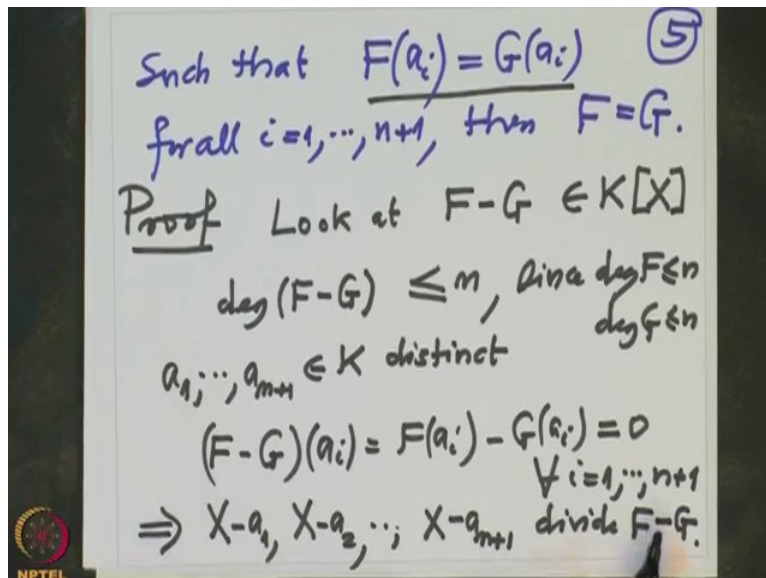 Such that F(aᵢ) = G(aᵢ) ⑤
for all i=1,⋯,n+1, then F=G.
Proof Look at F-G ∈ K[X]
deg(F-G) ≤ n, since deg F ≤ n
deg G ≤ n
a₁,⋯,aₙ₊₁ ∈ K distinct
(F-G)(aᵢ) = F(aᵢ) - G(aᵢ) = 0
∀ i=1,⋯,n+1
⇒ X-a₁, X-a₂,⋯, X-aₙ₊₁ divide F-G.
NPTEL